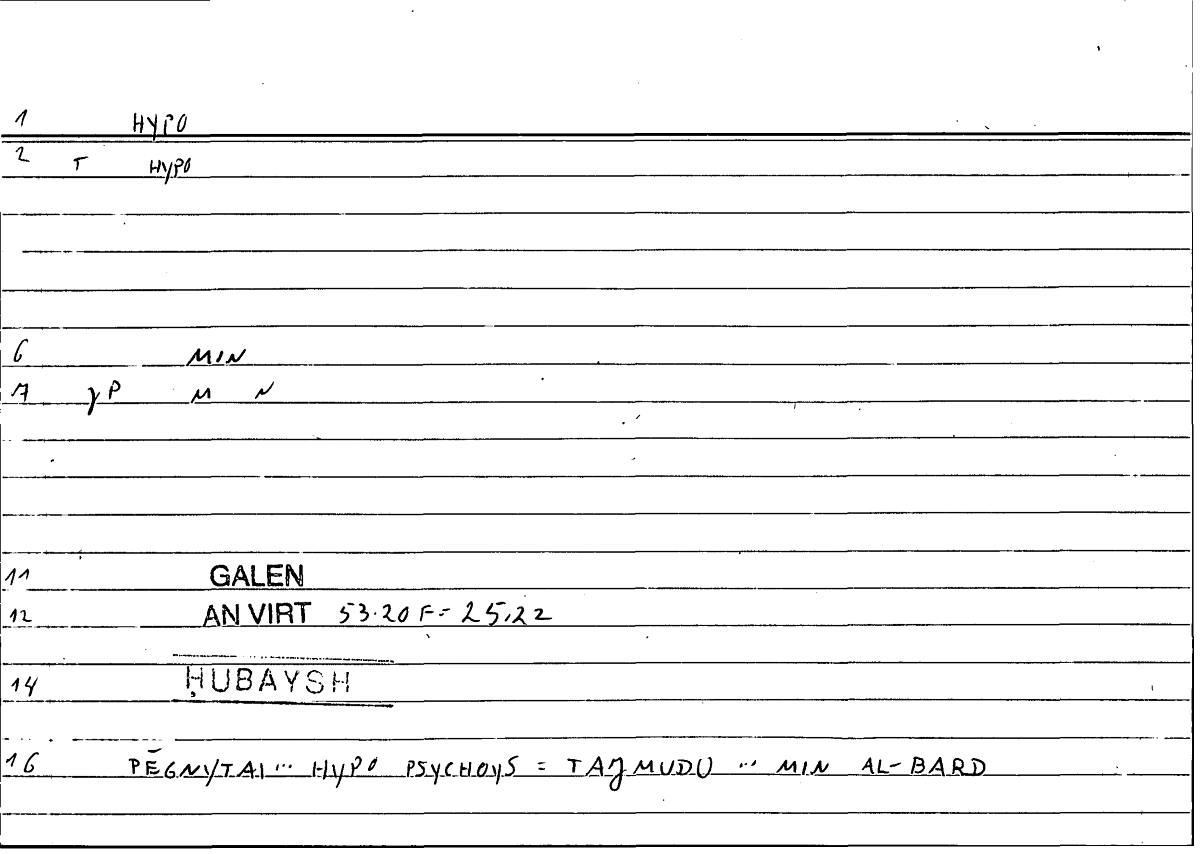 1 HYPO
2 T HYPO
6 MIN
7 γP M N
11 GALEN
12 AN VIRT 53.20 F = 25,22
14 ḤUBAYSH
16 PĒGNYTAI ... HYPO PSYCHOYS = TAJMUDU ... MIN AL-BARD